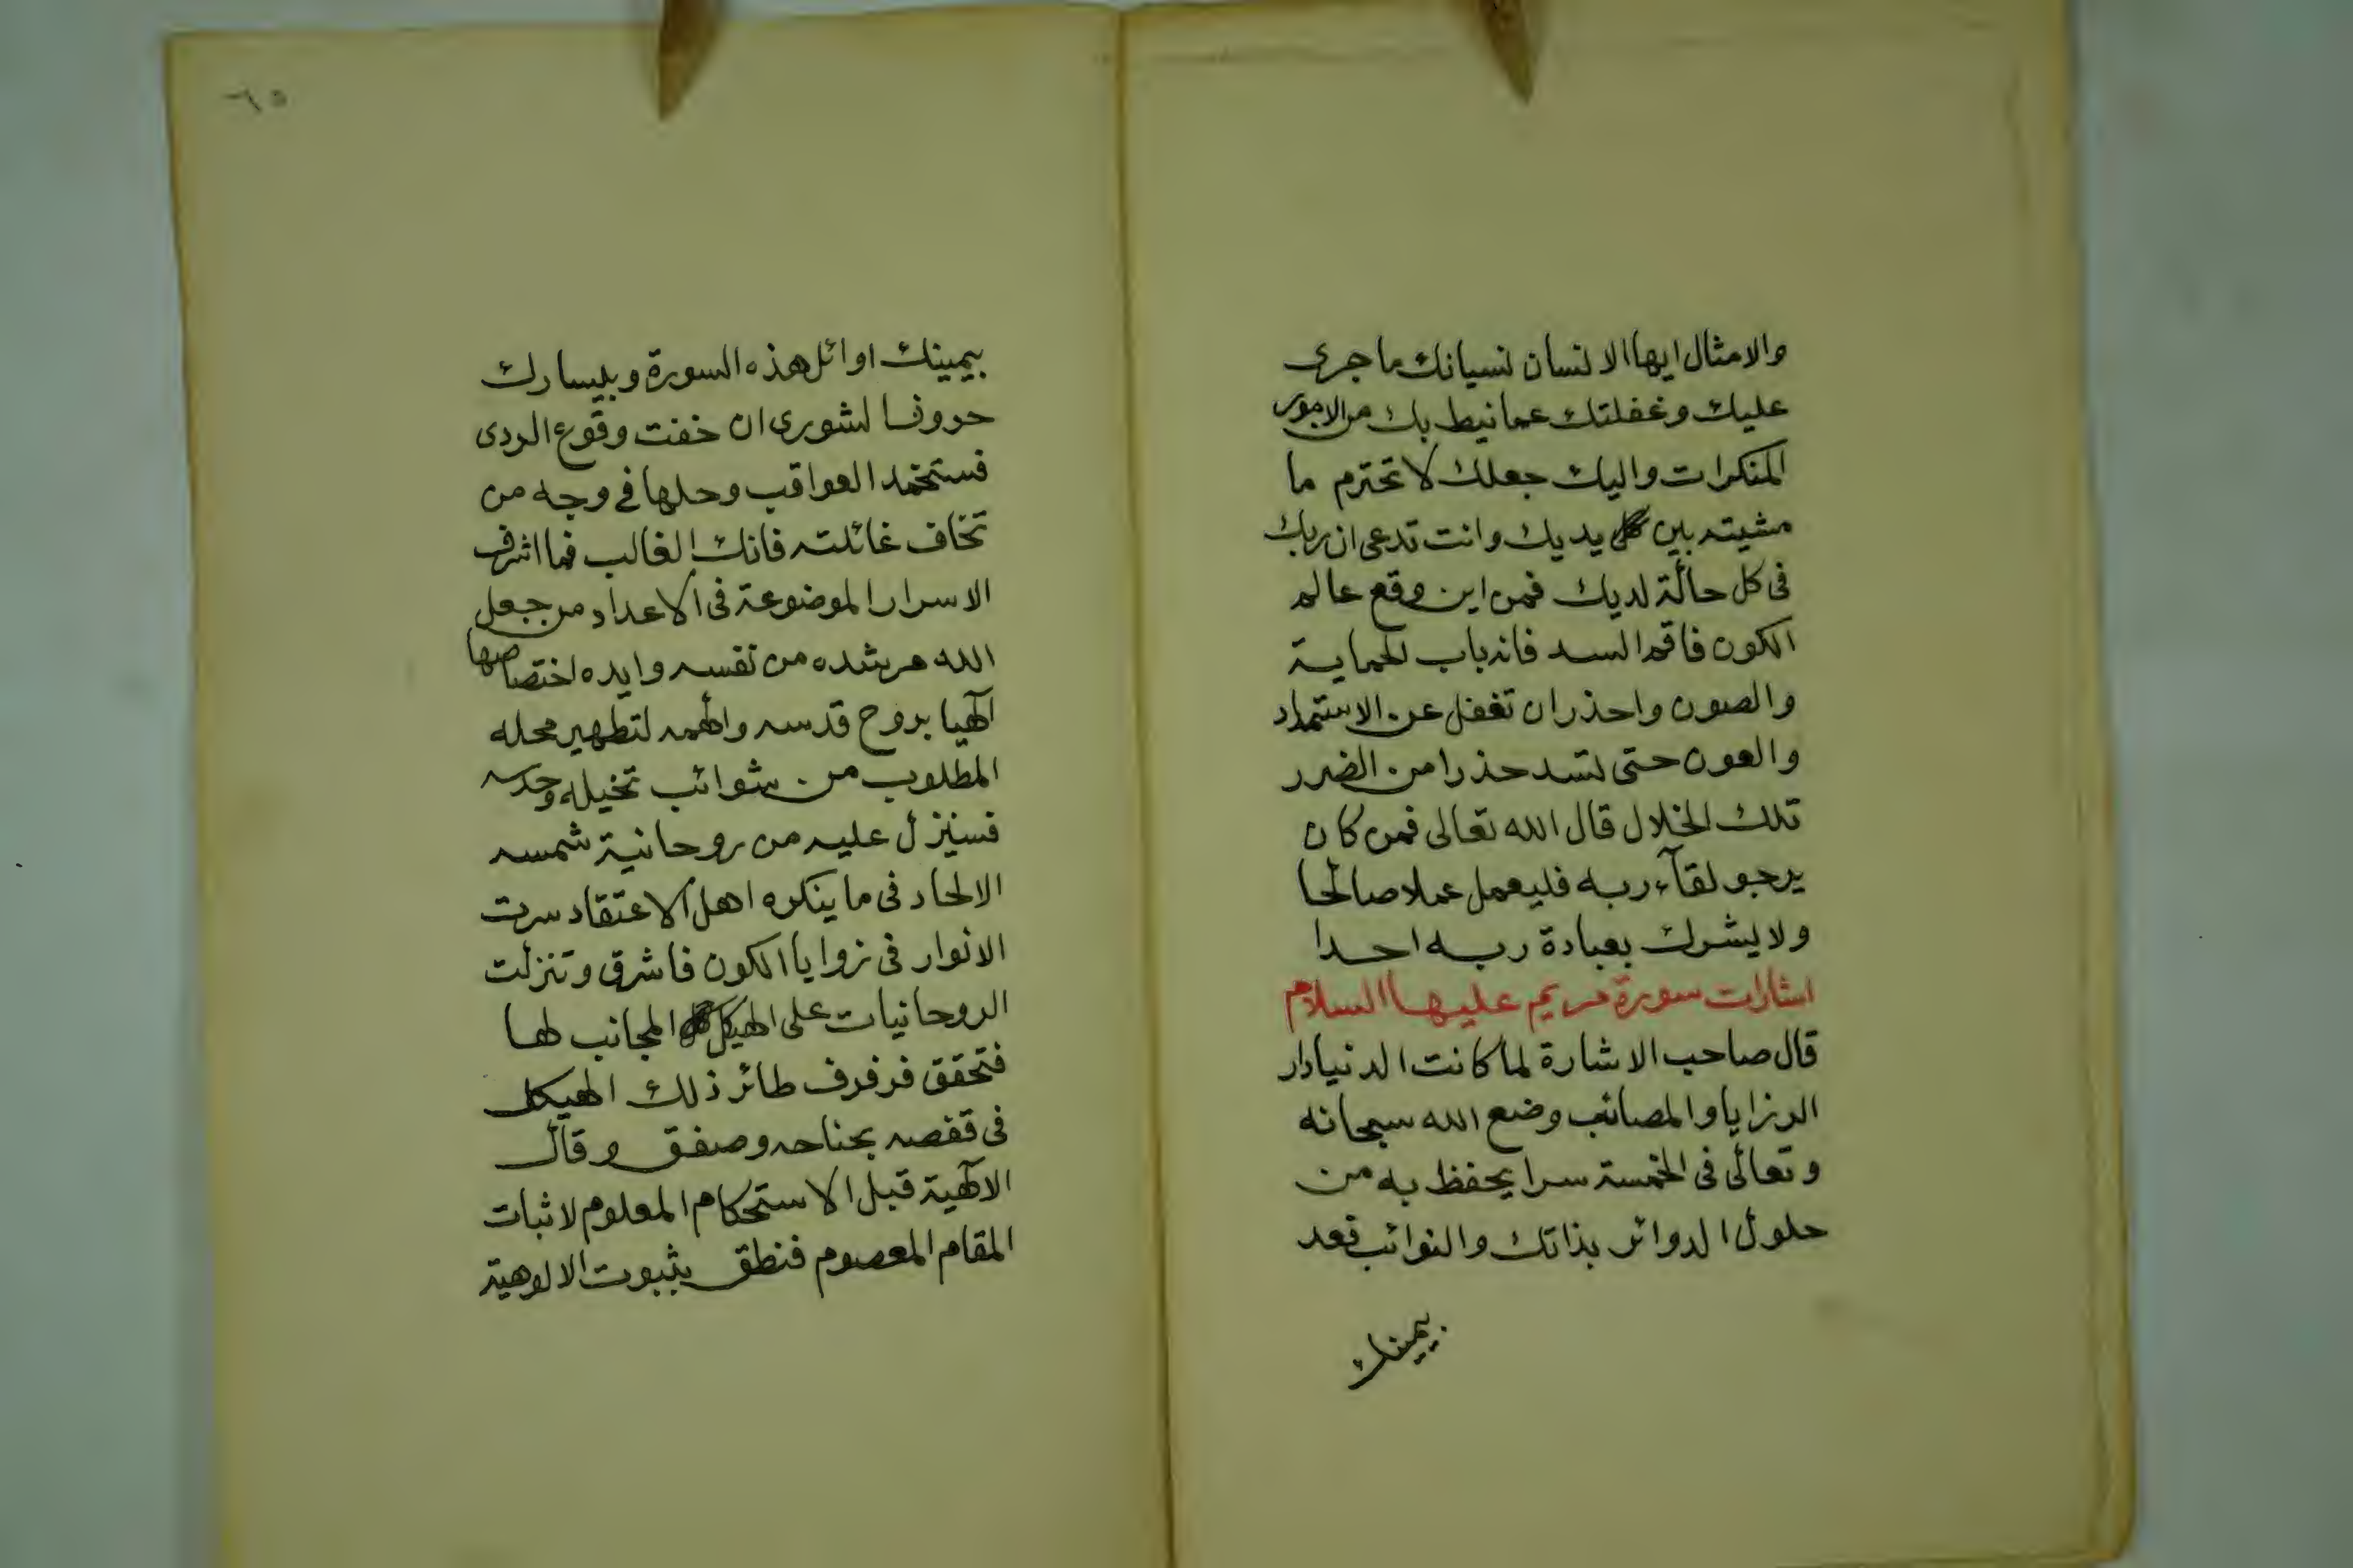 والامثال ايها الانسان نسيانك ما جرى
عليك وغفلتك عما نيط بك من الامور
المنكرات واليك جعلك لا تحترم ما
مشيته بين يديك وانت تدعى ان ربك
فى كل حالة لديك فمن اين وقع عالم
الكون فاقم السد فانه باب الحماية
والصون واحذر ان تغفل عن الاستمداد
والعون حتى تسد حذرا من الضرر
تلك الخلال قال الله تعالى فمن كان
يرجو لقآء ربه فليعمل عملا صالحا
ولا يشرك بعبادة ربه احدا
اشارات سورة مريم عليها السلام
قال صاحب الاشارة لما كانت الدنيا دار
الرزايا والمصائب وضع الله سبحانه
وتعالى فى الخمسة سرا يحفظ به من
حلول الدوائر بذاتك والنوائب فعد
بيمينك
٦٥
بيمينك اوائل هذه السورة وبيسارك
حروف الشورى ان خفت وقوع الردى
فستحمد العواقب وحلها فى وجه من
تخاف غائلته فانك الغالب فما اشرف
الاسرار الموضوعة فى الاعداد من جعل
الله مرشده من نفسه وايده اختصاصها
آلهيا بروح قدسه والهمه لتطهير محله
المطلوب من شوائب تخيله وحدسه
فسينزل عليه من روحانية شمسه
الالحاد فى ما ينكره اهل الاعتقاد سرت
الانوار فى زوايا الكون فاشرق وتنزلت
الروحانيات على الهيكل المجانب لها
فتحقق فرفرف طائر ذلك الهيكل
فى قفصه بجناحه وصفق وقال
الآلهية قبل الاستحكام المعلوم لاثبات
المقام المعصوم فنطق بثبوت الالوهية